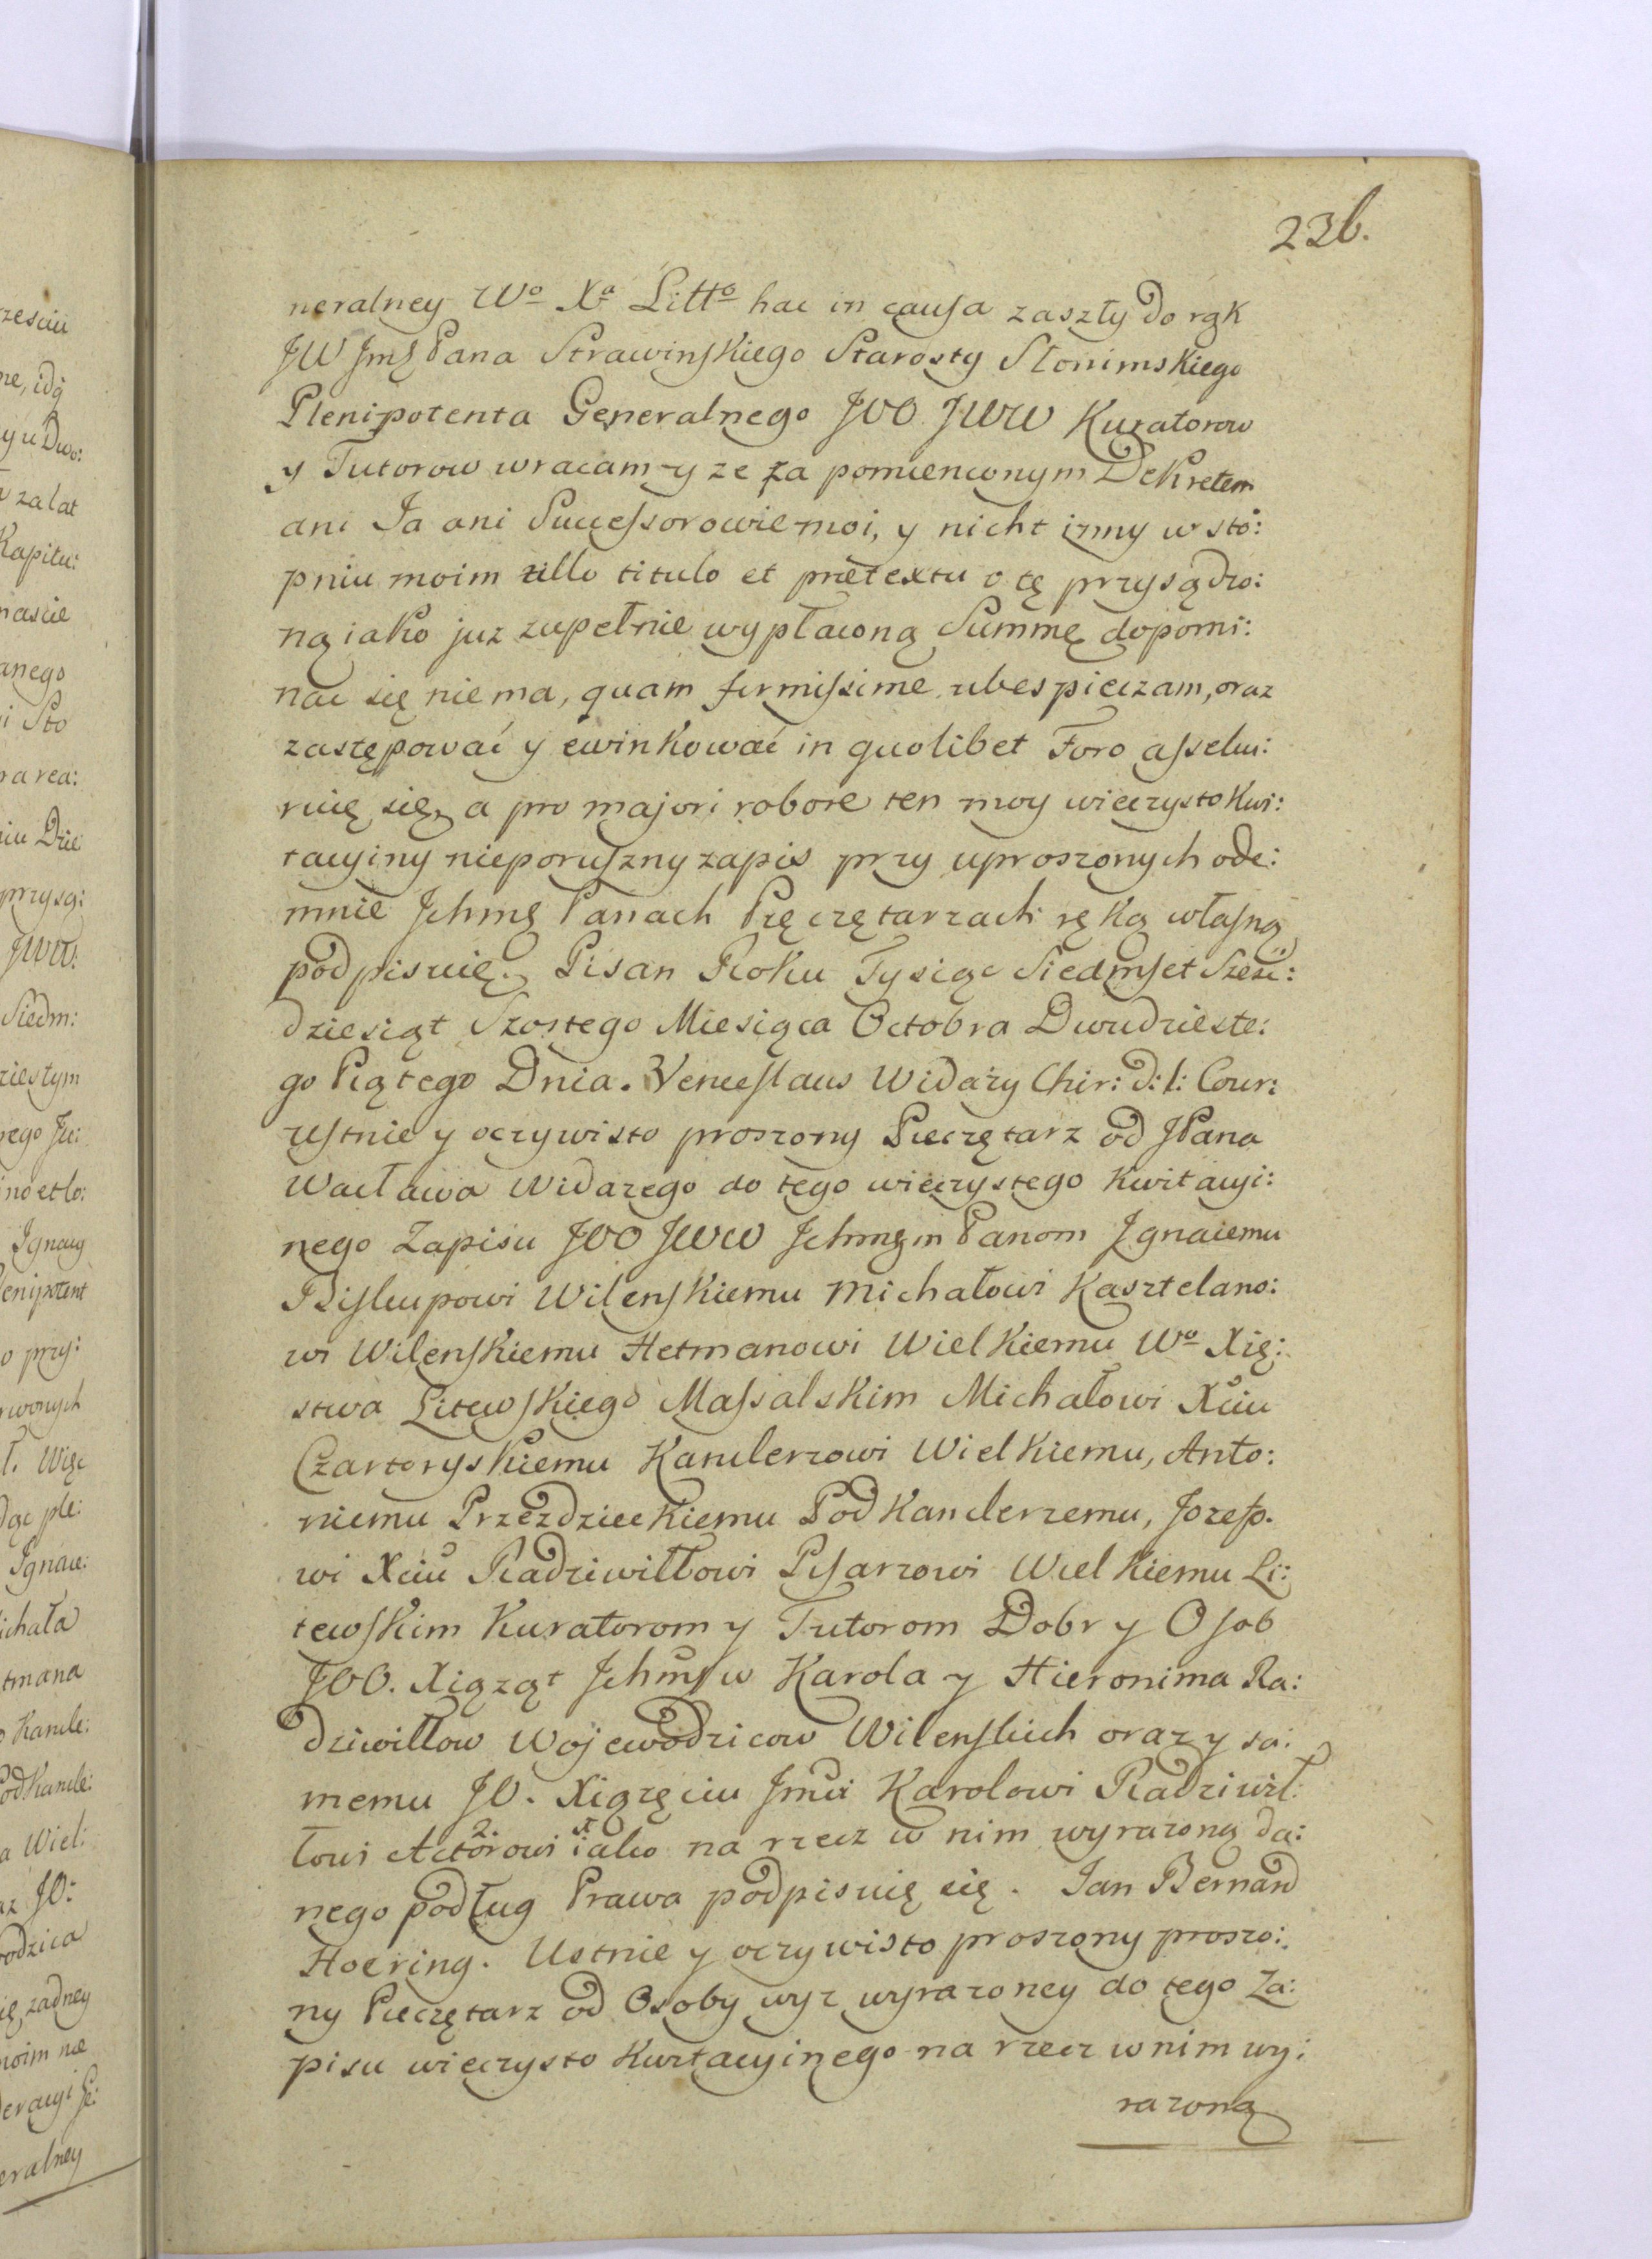 236.
neralney Wo Xa Litto hac in causa zaszły do rąk
JW Jmę Pana Strawinskiego Starosty Słonimskiego
Plenipotenta Generalnego JOO JWW Kuratorow
y Tutorow wracam y ze za pomienionym Dekretem
ani Ja ani Successorowie moi, y nicht inny w sto:
pniu moim ullo titulo et prætextu o tę przysądzo:
ną iako juz zupełnie wypłaconą Summę dopomi:
nac się nie ma, quam firmissime ubespieczam, oraz
zastępować y ewinkować in quolibet Foro assekui:
ruię się, a pro majori robore ten moy wieczysto Kwi:
tacyiny nieporuszny zapis przy uproszonych ode:
mnie Jchmę Panach Pięczętarzach ręką własną
podpisuię. Pisan Roku Tysiąc Siedmset Szesć:
dziesiąt Szostego Miesiąca Octobra Dwudzieste:
go Piątego Dnia. Venceslaus Widaży Chir: d: l: Cour:
Ustnie y oczywisto proszony Pieczętarz od JPana
Wacława Widazego do tego wieczystego Kwitacyi:
nego Zapisu JOO JWW Jchmęm Panom Jgnacemu
Biskupowi Wilenskiemu Michałowi Kasztelano:
wi Wilenskiemu Hetmanowi Wielkiemu Wo Xię:
stwa Litewskiego Massalskim Michałowi Xciu
Czartoryskiemu Kanclerzowi Wielkiemu, Anto:
niemu Przezdzieckiemu Podkanclerzemu, Jozefo.
wi Xciu Radziwiłłowi Pisarzowi Wielkiemu Li:
tewskim Kuratorom y Tutorom Dobr y Osob
JOO. Xiąząt Jchmsw Karola y Hieronima Ra:
dziwiłłow Wojewodzicow Wilenskich oraz y sa:
memu JO. Xiązęciu Jmci Karolowi Radziwił:
łowi Actorowi iako na rzecz w nim wyrazoną da:
nego podług Prawa podpisuię się. Jan Bernard
Hoering. Ustnie y oczywisto proszony proszo:
ny Pieczętarz od Osoby wyz wyrazoney do tego Za:
pisu wieczysto Kwitacyinego na rzecz w nim wy:
razoną